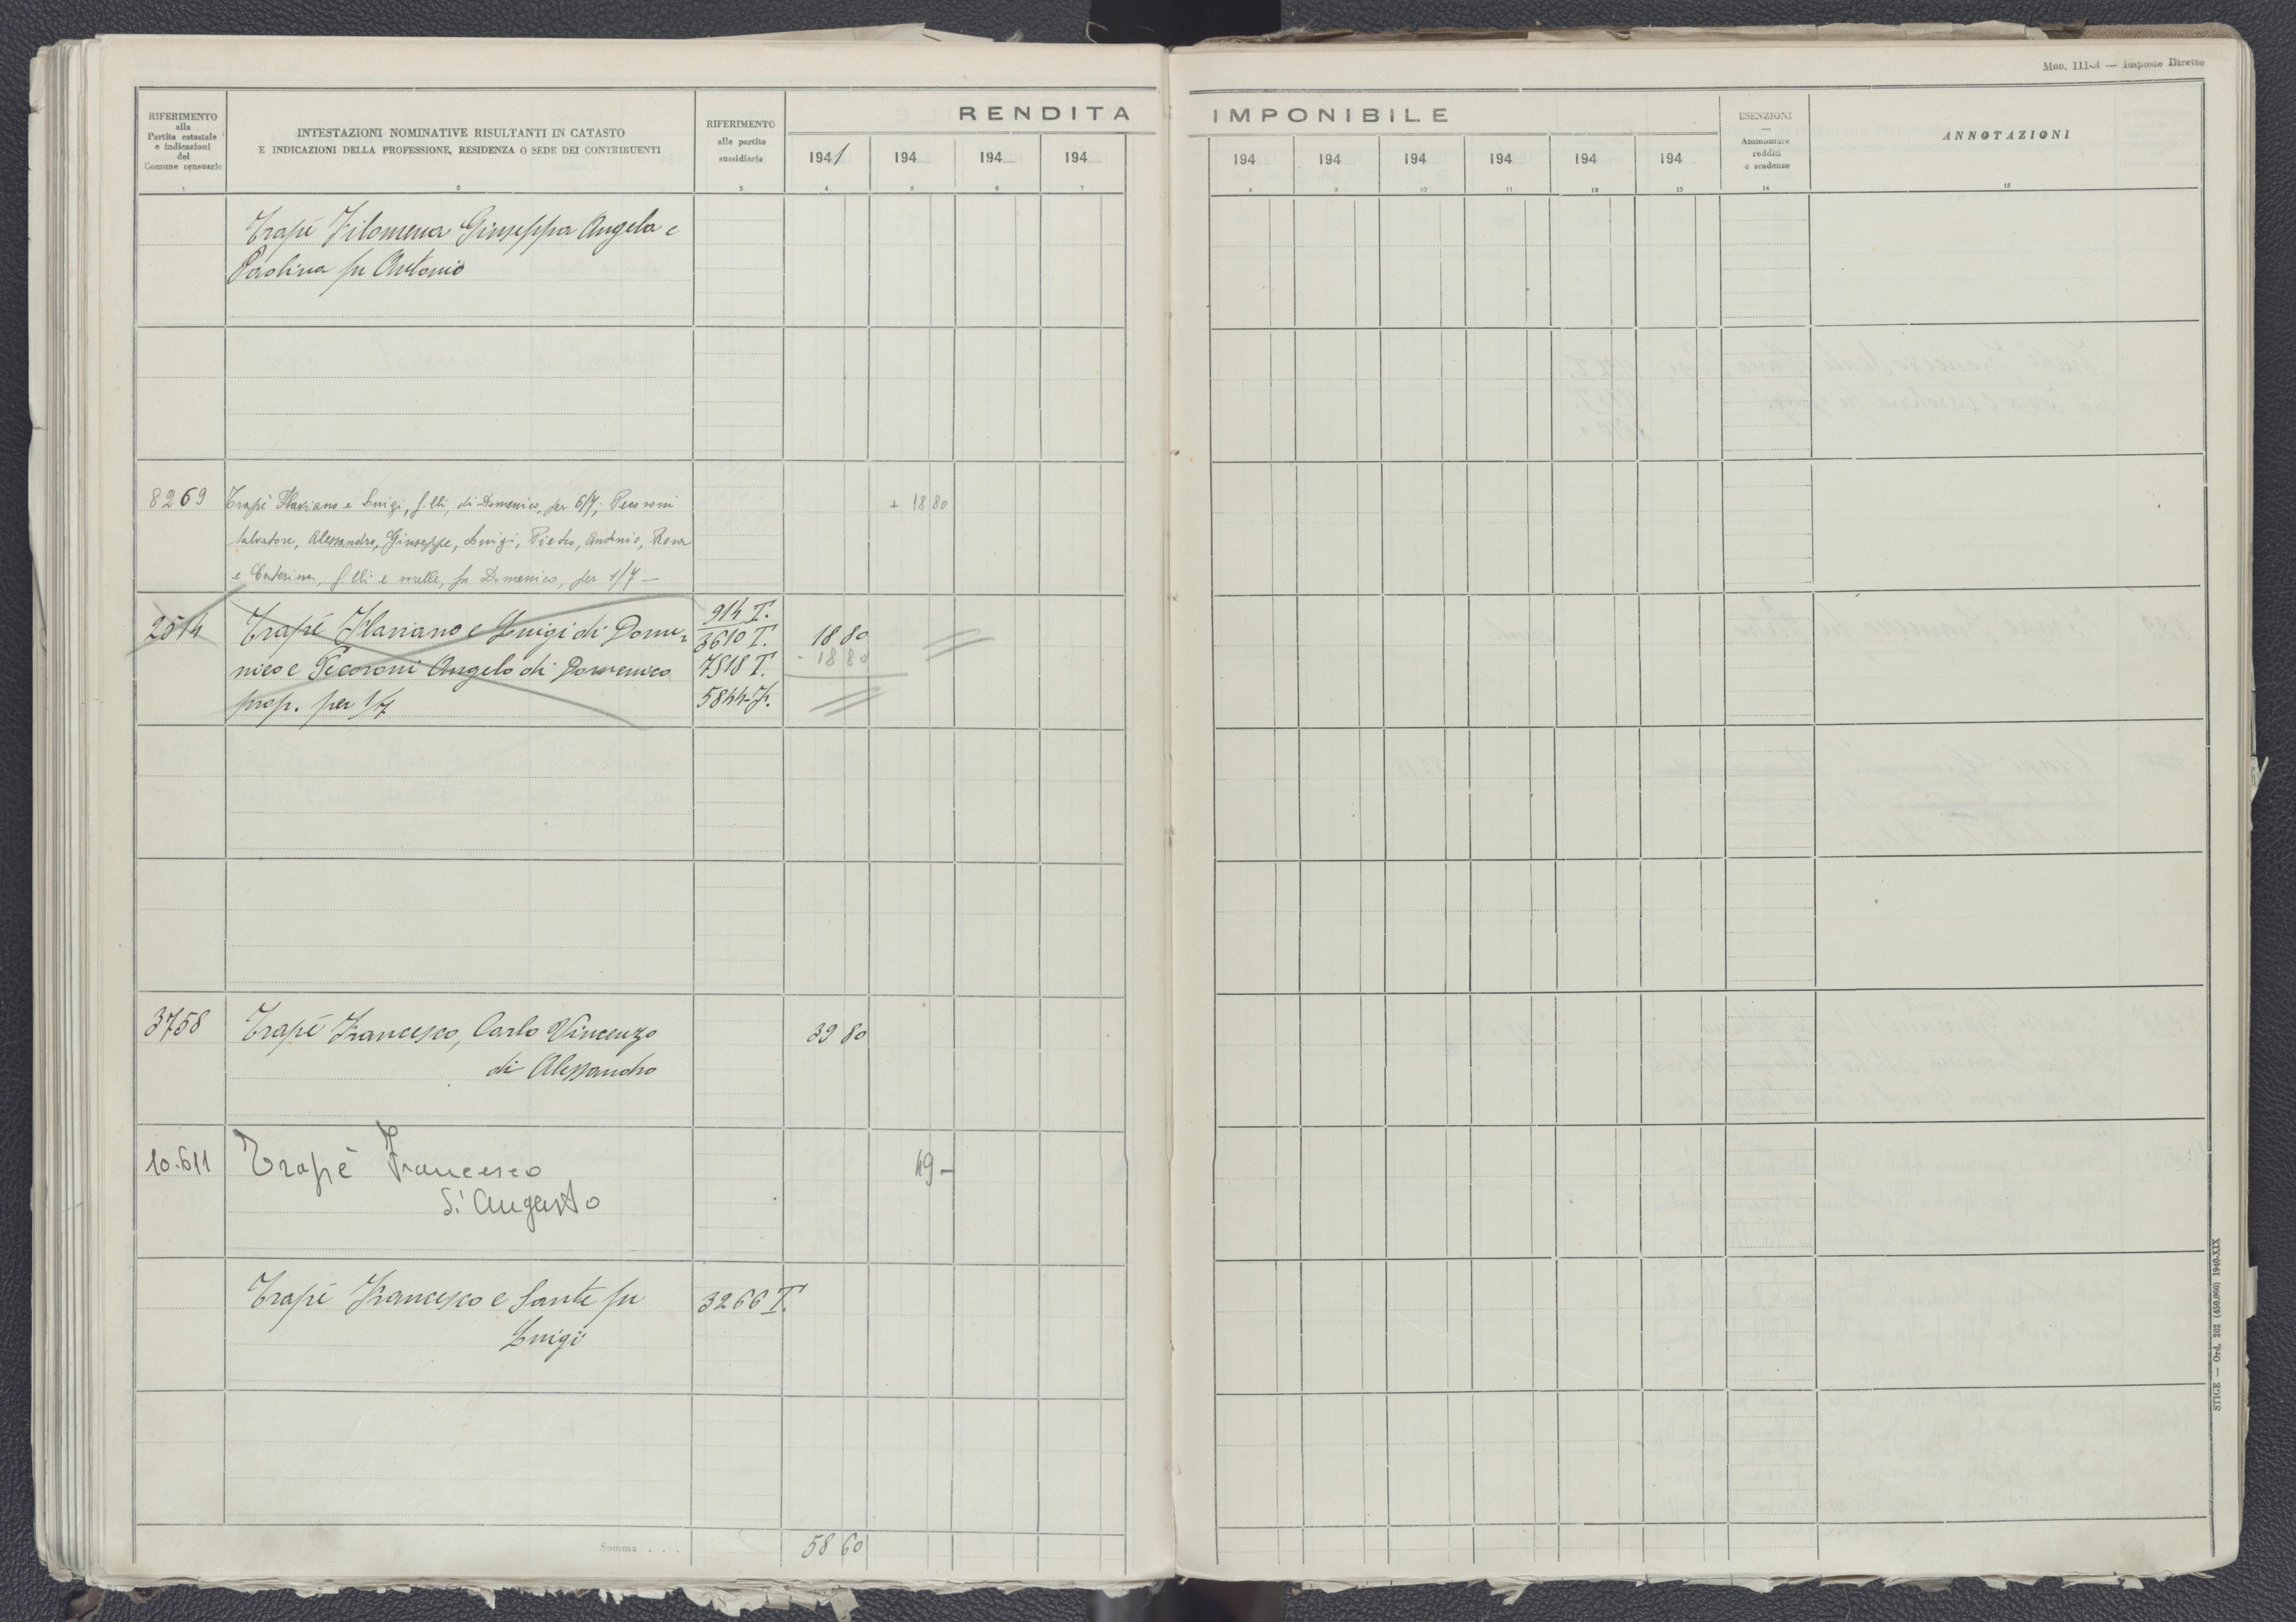 Mod. 111-A — Imposte Dirette
RIFERIMENTO
alla
Partita catastale
e indicazioni
del
Comune censuario
INTESTAZIONI NOMINATIVE RISULTANTI IN CATASTO
E INDICAZIONI DELLA PROFESSIONE, RESIDENZA O SEDE DEI CONTRIBUENTI
RIFERIMENTO
alle partite
sussidiarie
RENDITA IMPONIBILE
1941 194 194 194 194 194 194 194 194 194
ESENZIONI
—
Ammontare
redditi
o scadenze
ANNOTAZIONI
1 2 3 4 5 6 7 8 9 10 11 12 13 14 15
Trapé Filomena Giuseppa Angela e
Paolina fu Antonio
8269 Trapé Flaviano e Luigi, f.lli, di Domenico, per 6/7; Pecoroni + 18 80
Salvatore, Alessandro, Giuseppe, Luigi, Pietro, Antonio, Rosa
e Caterina, f.lli e sorelle, fu Domenico, per 1/7 —
2514 Trapé Flaviano e Luigi di Dome-
nico e Pecoroni Angelo di Domenico
prop. per 1/7
914 T.
3610 T.
7518 T.
5844 F.
18 80
- 18 80
3758 Trapé Francesco, Carlo Vincenzo 39 80
di Alessandro
10.611 Trapé Francesco 49 -
di Augusto
Trapé Francesco e Sante fu 3266 T.
Luigi
Somma . . . 58 60
STIGE — Ord. 202 (450.000) 1940-XIX